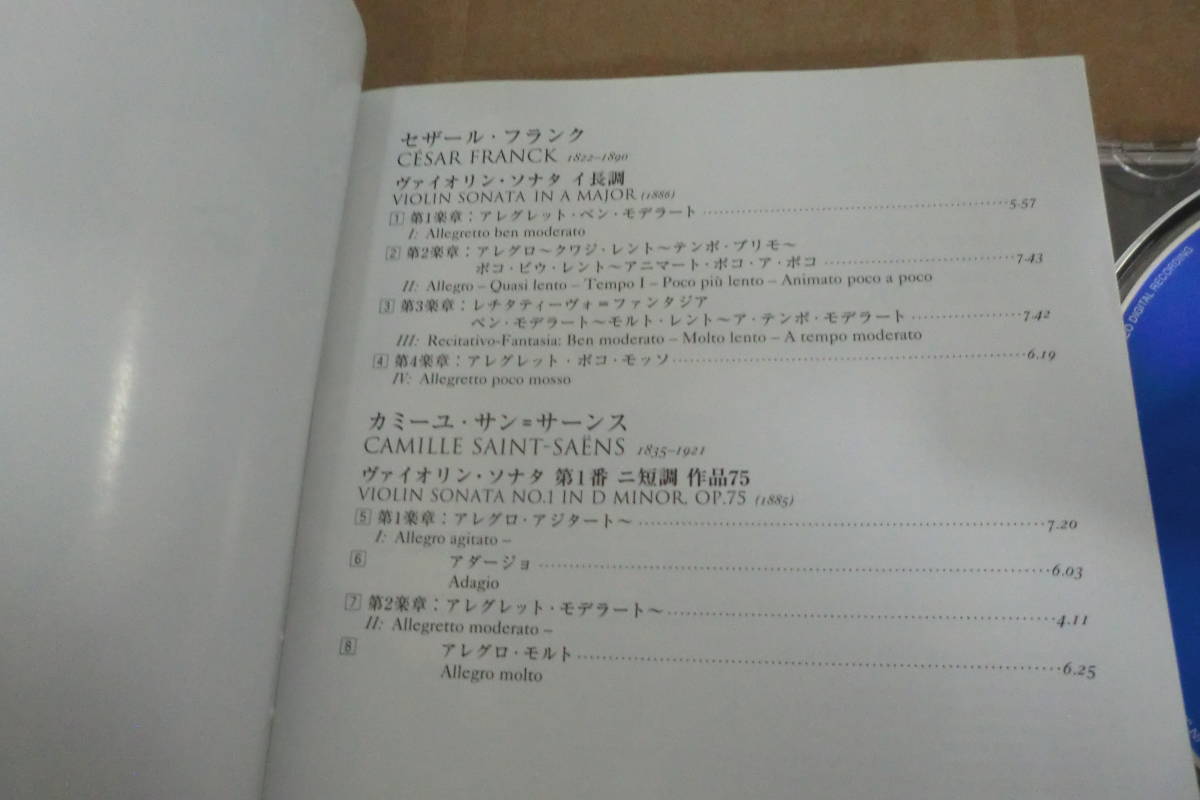 セザール・フランク
CÉSAR FRANCK 1822–1890
ヴァイオリン・ソナタ イ長調
VIOLIN SONATA IN A MAJOR (1886)
1 第1楽章：アレグレット・ベン・モデラート 5.57
I: Allegretto ben moderato
2 第2楽章：アレグロ〜クワジ・レント〜テンポ・プリモ〜
ポコ・ピウ・レント〜アニマート・ポコ・ア・ポコ 7.43
II: Allegro – Quasi lento – Tempo I – Poco più lento – Animato poco a poco
3 第3楽章：レチタティーヴォ=ファンタジア
ベン・モデラート〜モルト・レント〜ア・テンポ・モデラート 7.42
III: Recitativo-Fantasia: Ben moderato – Molto lento – A tempo moderato
4 第4楽章：アレグレット・ポコ・モッソ 6.19
IV: Allegretto poco mosso
カミーユ・サン=サーンス
CAMILLE SAINT-SAËNS 1835–1921
ヴァイオリン・ソナタ 第1番 ニ短調 作品75
VIOLIN SONATA NO.1 IN D MINOR, OP.75 (1885)
5 第1楽章：アレグロ・アジタート〜 7.20
I: Allegro agitato –
6 アダージョ 6.03
Adagio
7 第2楽章：アレグレット・モデラート〜 4.11
II: Allegretto moderato –
8 アレグロ・モルト 6.25
Allegro molto
DIGITAL RECORDING